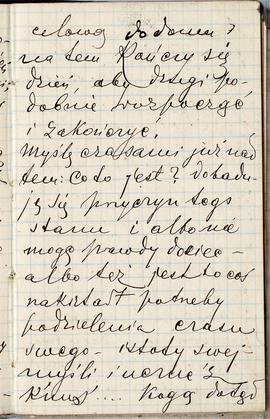 celową do domu i
na tem kończy się
dzień, aby drugi po-
dobnie rozpocząć
i zakończyć.
Myślę czasami już nad
tem: co to jest? dobadu-
ję się przyczyn tego
stanu i albo nie
mogę prawdy dociec -
albo też jest to coś
nakształt potrzeby
podzielenia czasu
swego - istoty swej
myśli i uczuć z
kimś.... Kogo dotąd